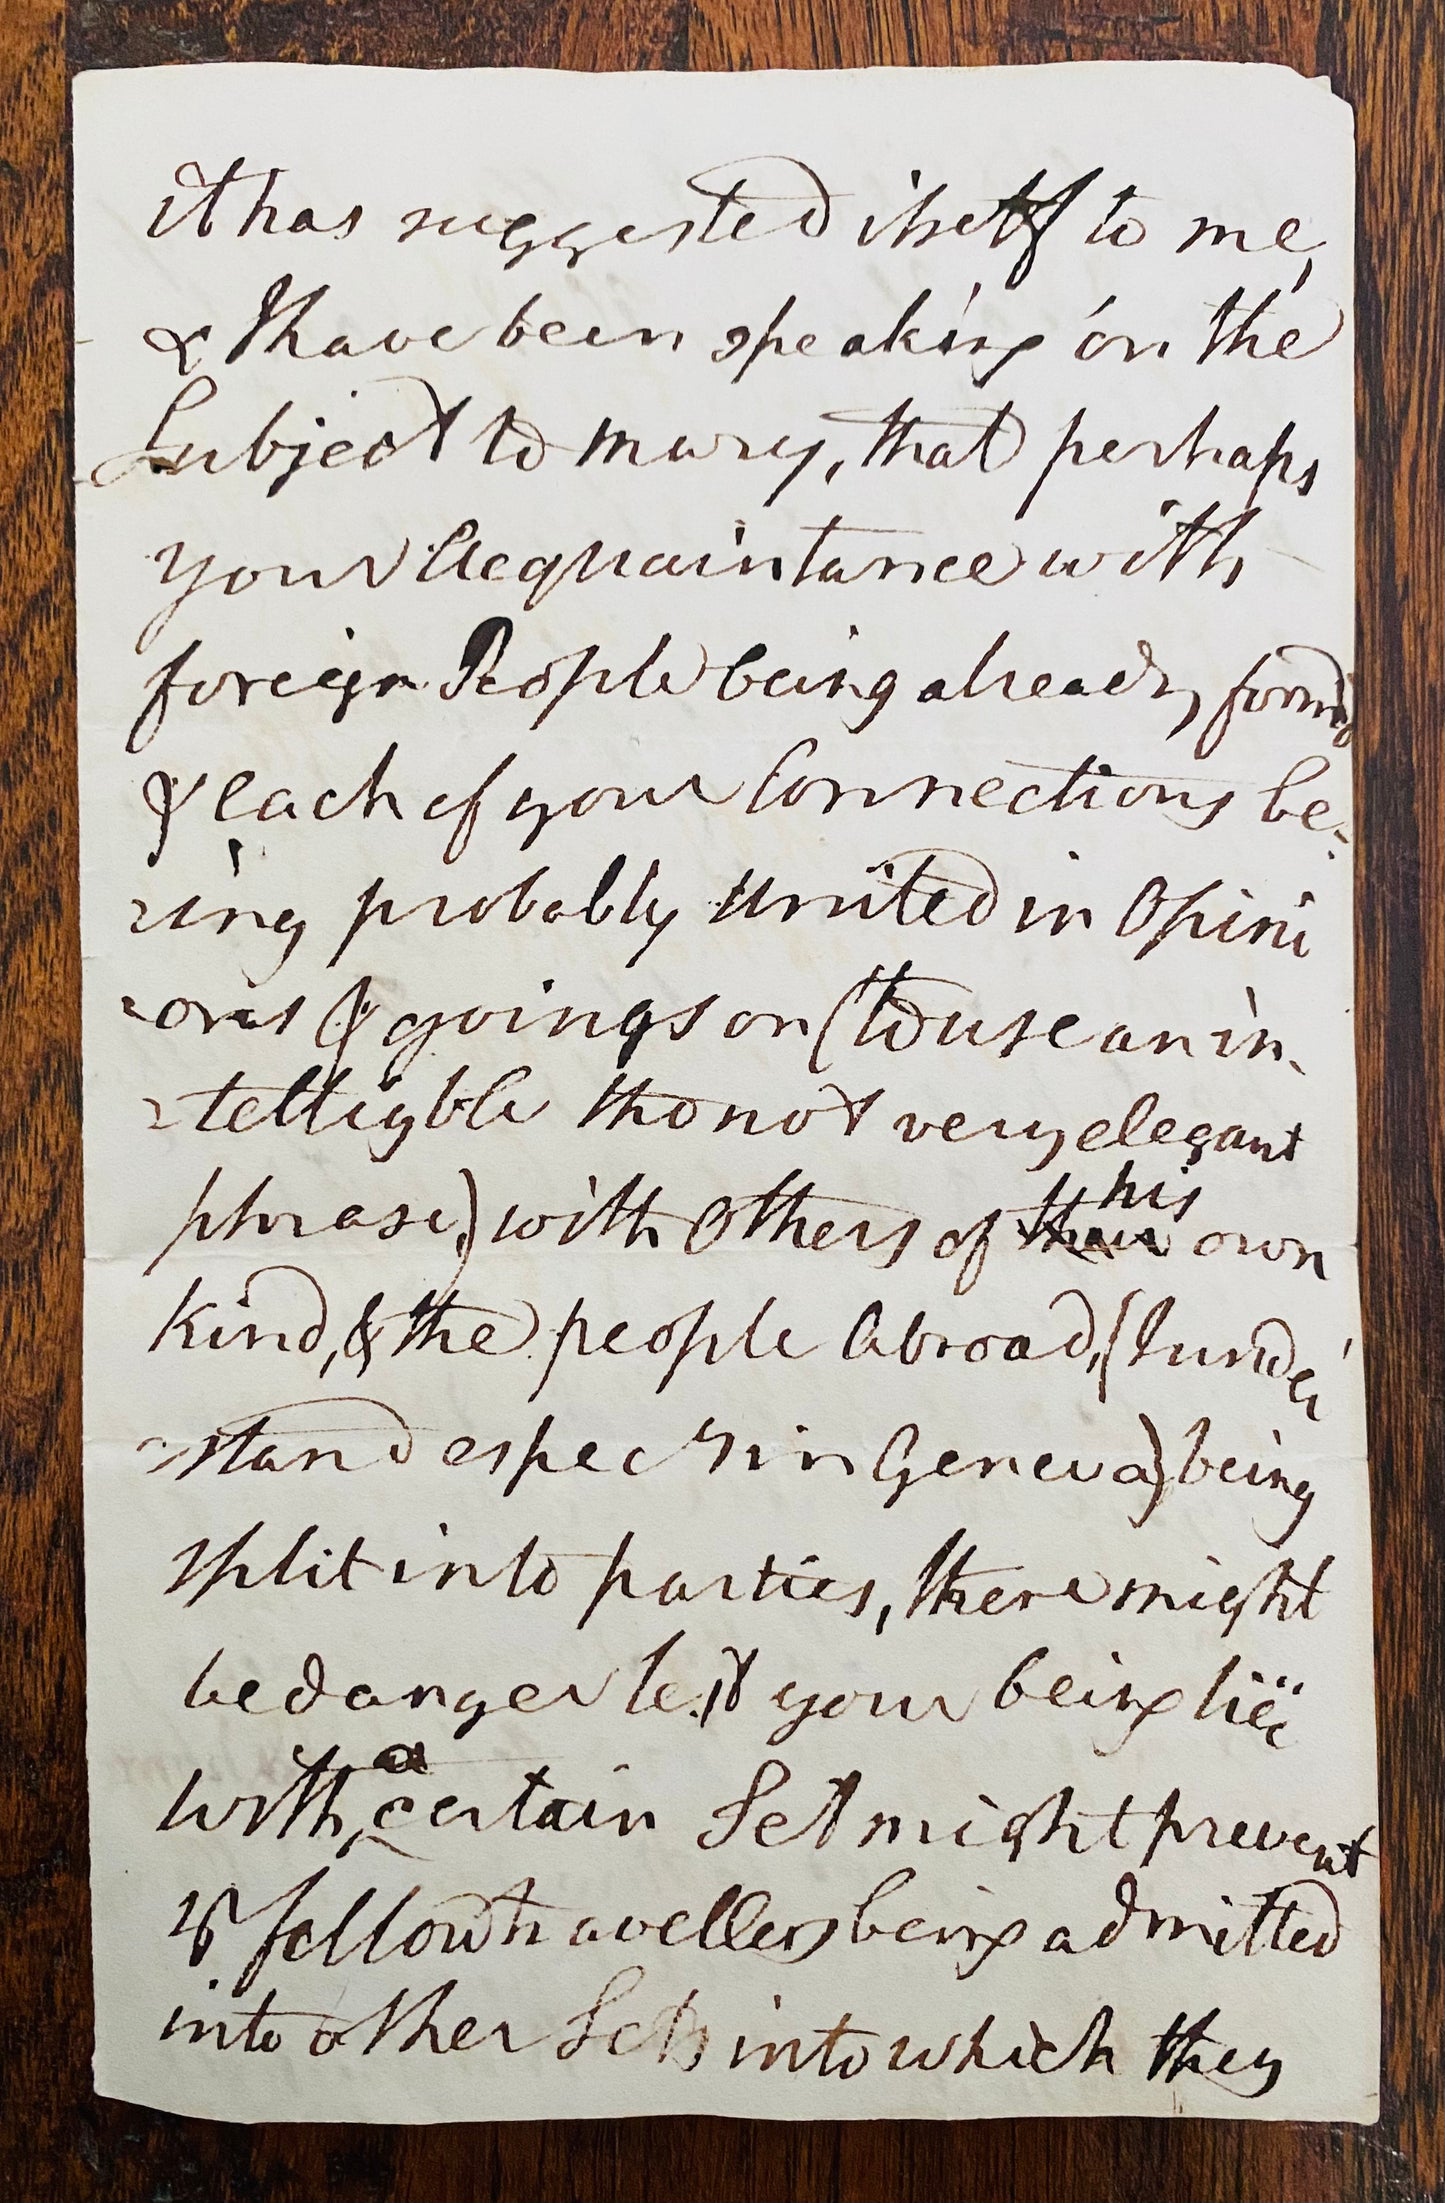 it has suggested itself to me,
& I have been speaking on the
Subject to Mary, that perhaps
your Acquaintance with
foreign People being already form'd
& each of your Connections be-
-ing probably United in Opini
-ons & goings on (to use an in-
-telligble tho not very elegant
phrase,) with Others of their his own
Kind, & the people Abroad, (I under
-stand especly in Geneva) being
split into parties, there might
be danger lest your being liëe
with a certain Set might prevent
yr fellow travellers being admitted
into other Sets into which they